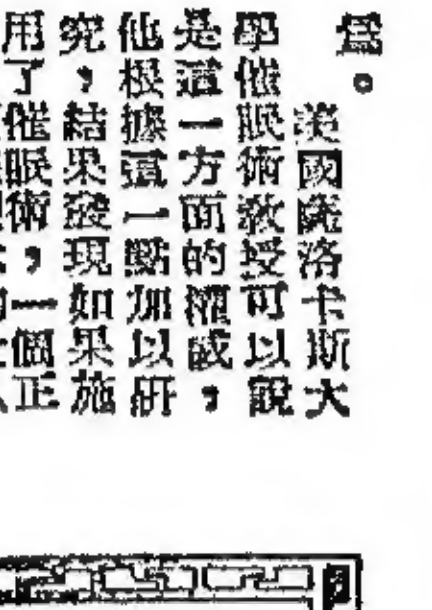 爲。
美國洛卡斯大
學催眠術教授可以說
是這一方面的權威，
他根據這一點加以研
究，結果發現如果施
用了催眠術，一個正